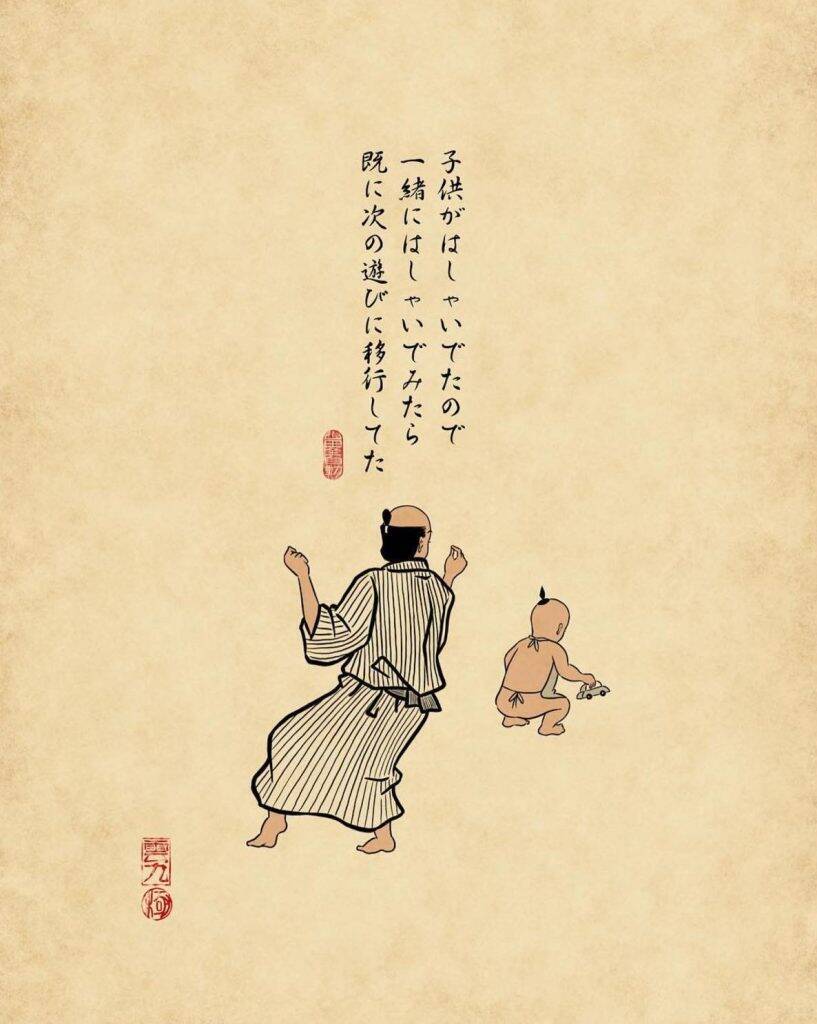 子供がはしゃいでたので
一緒にはしゃいでみたら
既に次の遊びに移行してた